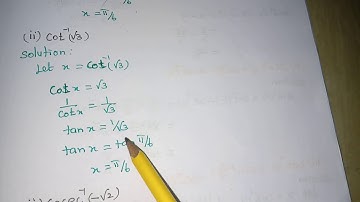 x = π/6
(ii) Cot⁻¹(√3)
Solution:
Let x = Cot⁻¹(√3)
Cot x = √3
1/Cot x = 1/√3
tan x = 1/√3
tan x = tan π/6
x = π/6
(-√2)